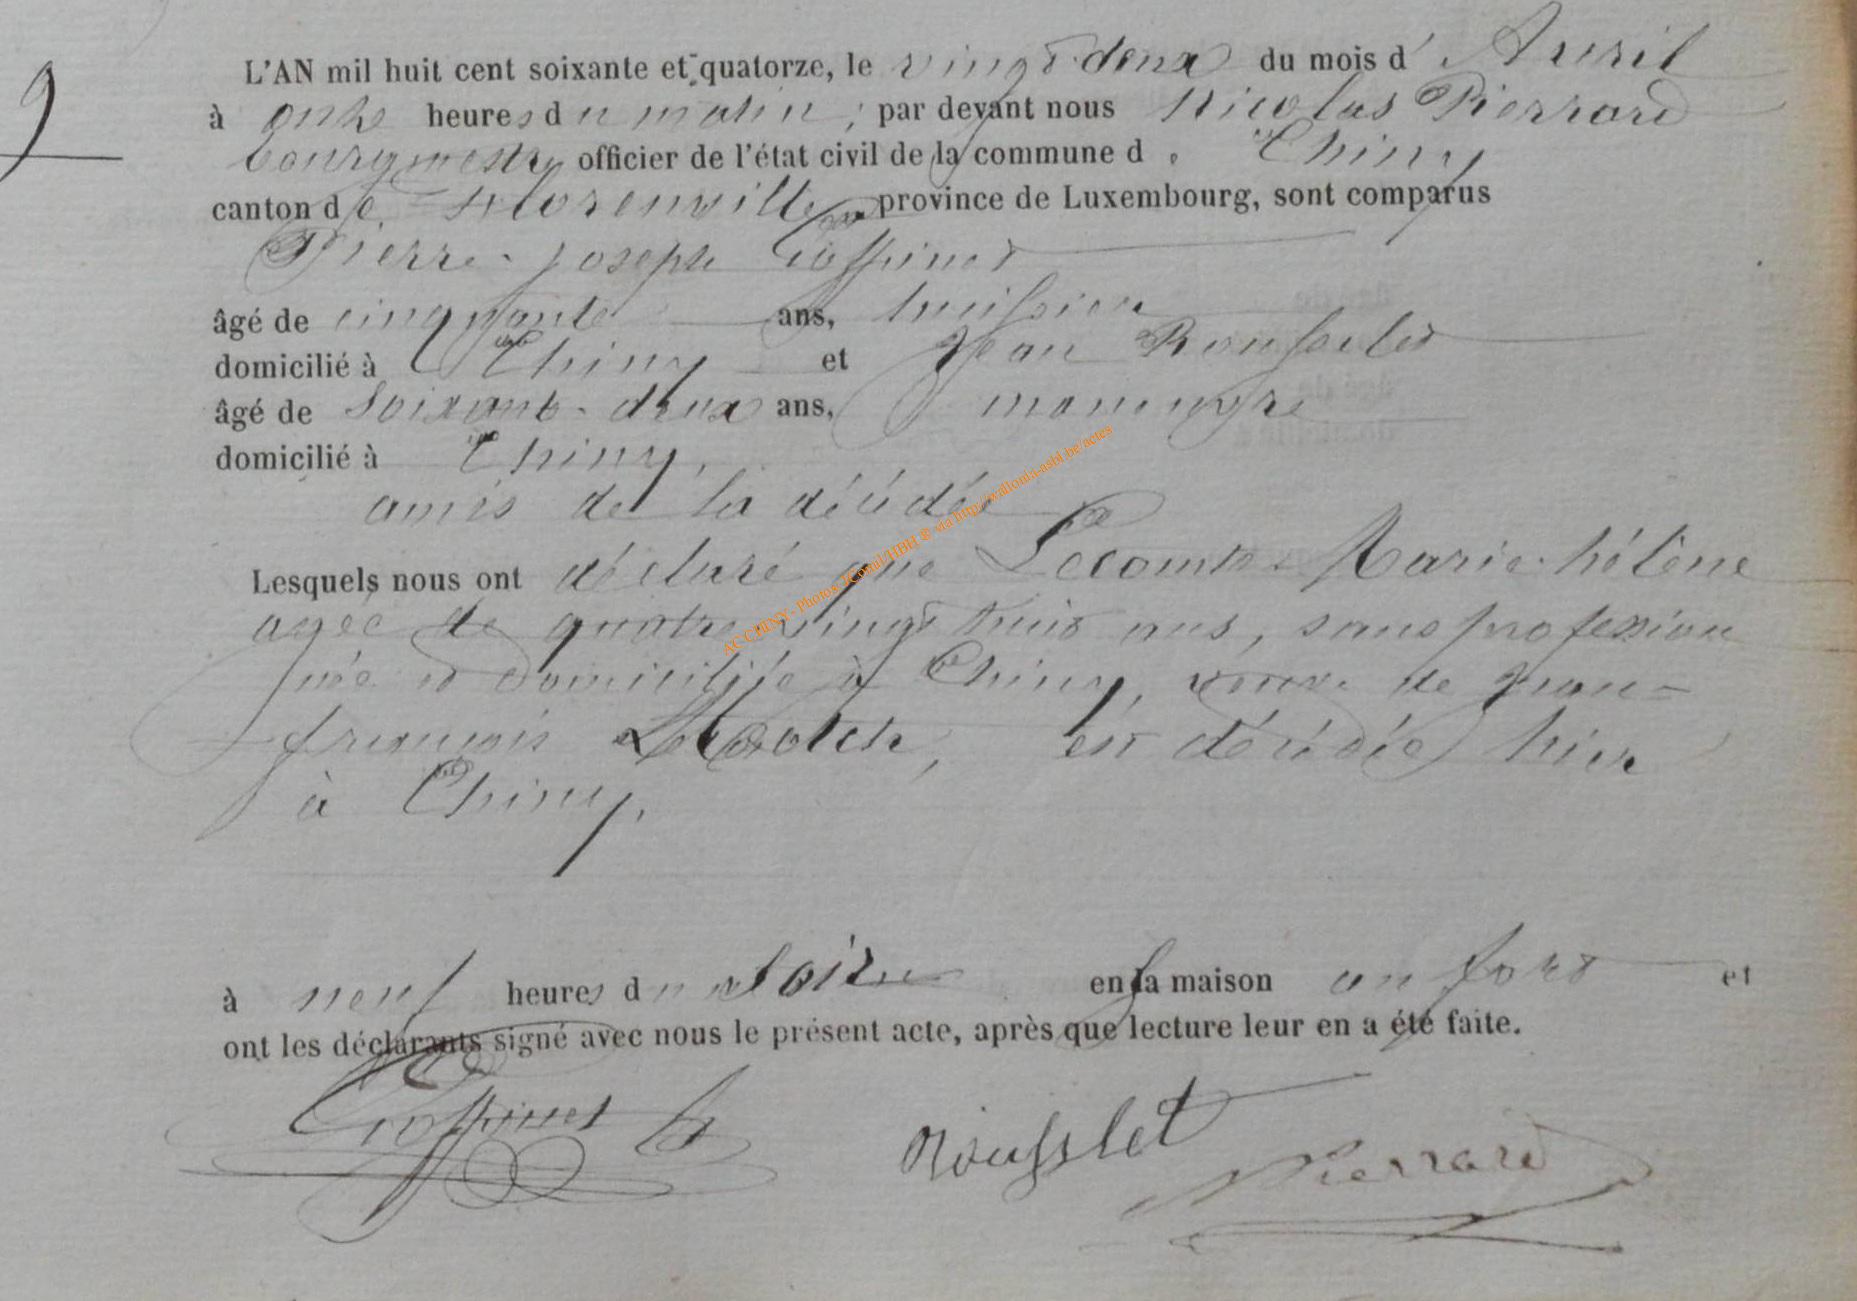 9
L'AN mil huit cent soixante et quatorze, le vingt-deux du mois d'Avril
à onze heures du matin, par devant nous Nicolas Pierrard
bourgmestre officier de l'état civil de la commune de Chiny
canton de Florenville province de Luxembourg, sont comparus
Pierre-Joseph Goffinet
âgé de cinquante ans, huissier
domicilié à Chiny et Jean Rousselet
âgé de soixante-deux ans, manœuvre
domicilié à Chiny,
amis de la décédée
Lesquels nous ont déclaré que Lecomte Marie-hélène
agée de quatre-vingt huit ans, sans profession
née et domiciliée à Chiny, veuve de Jean-
françois est décédée hier
à Chiny.
à neuf heures du soir en la maison et
ont les déclarants signé avec nous le présent acte, après que lecture leur en a été faite.
Goffinet Rousslet Pierrard
AC CHINY - Photos JComul/HBH © via http://walloula-asbl.be/actes